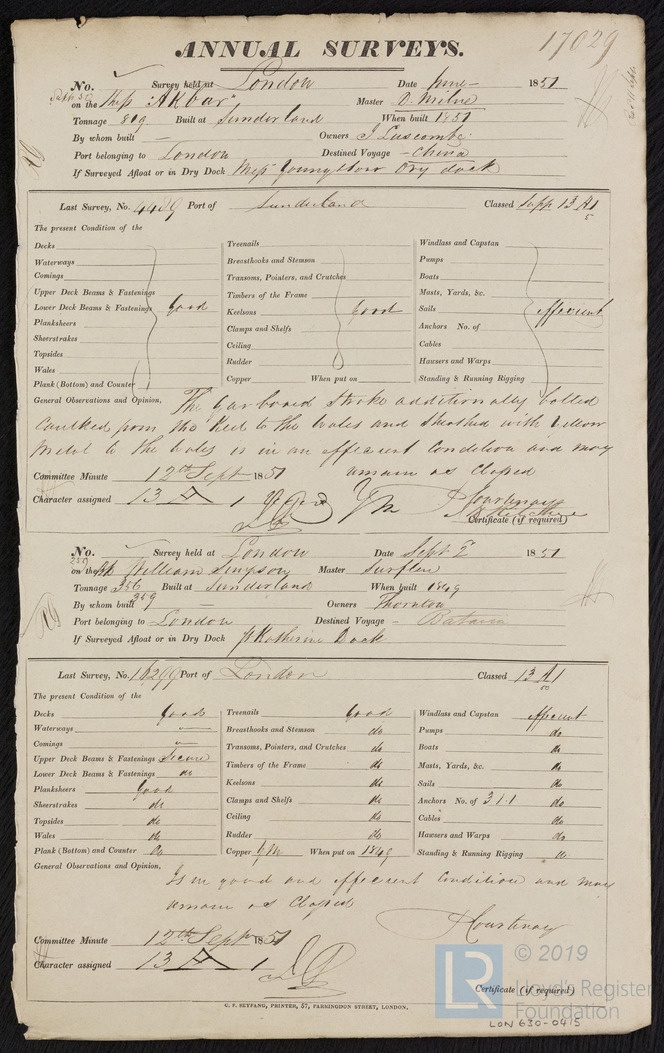 17029
ANNUAL SURVEYS.
No. Survey held at London Date June 1851
on the Ship "Akbar" Master D. Milne
Tonnage 809 Built at Sunderland When built 1851
By whom built — Owners J Luscombe
Port belonging to London Destined Voyage – China
If Surveyed Afloat or in Dry Dock Dry dock
Last Survey, No. 4409 Port of Sunderland Classed 13 A1
5
The present Condition of the
Decks Treenails Windlass and Capstan
Waterways Breasthooks and Stemson Pumps
Comings Transoms, Pointers, and Crutches Boats
Upper Deck Beams & Fastenings Timbers of the Frame Masts, Yards, &c.
Lower Deck Beams & Fastenings Good Keelsons Good Sails efficient
Planksheers Clamps and Shelfs Anchors No. of
Sheerstrakes Ceiling Cables
Topsides Rudder Hawsers and Warps
Wales Copper When put on Standing & Running Rigging
Plank (Bottom) and Counter
General Observations and Opinion, The Garboard Stroke additionally bolted
Caulked from the Keel to the Wales and Sheathed with Yellow
Metal to the Wales is in an efficient condition and may
remain as Classed
Committee Minute 12th Sept 1851
Character assigned 13 A 1
Courtenay
Certificate (if required)
No. Survey held at London Date Sept 2 1851
on the William Simpson Master Surflen
Tonnage 356 Built at Sunderland When built 1849
359
By whom built — Owners Thornton
Port belonging to London Destined Voyage – Batavia
If Surveyed Afloat or in Dry Dock St Katherine Dock
Last Survey, No. 16299 Port of London Classed 13 A1
50
The present Condition of the
Decks Good Treenails Good Windlass and Capstan efficient
Waterways — Breasthooks and Stemson do Pumps do
Comings — Transoms, Pointers, and Crutches do Boats do
Upper Deck Beams & Fastenings Secure Timbers of the Frame do Masts, Yards, &c. do
Lower Deck Beams & Fastenings do Keelsons do Sails do
Planksheers Good Clamps and Shelfs do Anchors No. of 3 1 1 do
Sheerstrakes do Ceiling do Cables do
Topsides do Rudder do Hawsers and Warps do
Wales do Copper YM When put on 1849 Standing & Running Rigging do
Plank (Bottom) and Counter do
General Observations and Opinion,
Is in good and efficient Condition and may
remain as Classed
Courtenay
Committee Minute 12th Sept 1851
Character assigned 13 A 1
Certificate (if required)
G. F. SEYFANG, PRINTER, 57, FARRINGDON STREET, LONDON.
LR © 2019
Lloyd's Register
Foundation
LON 630-0415